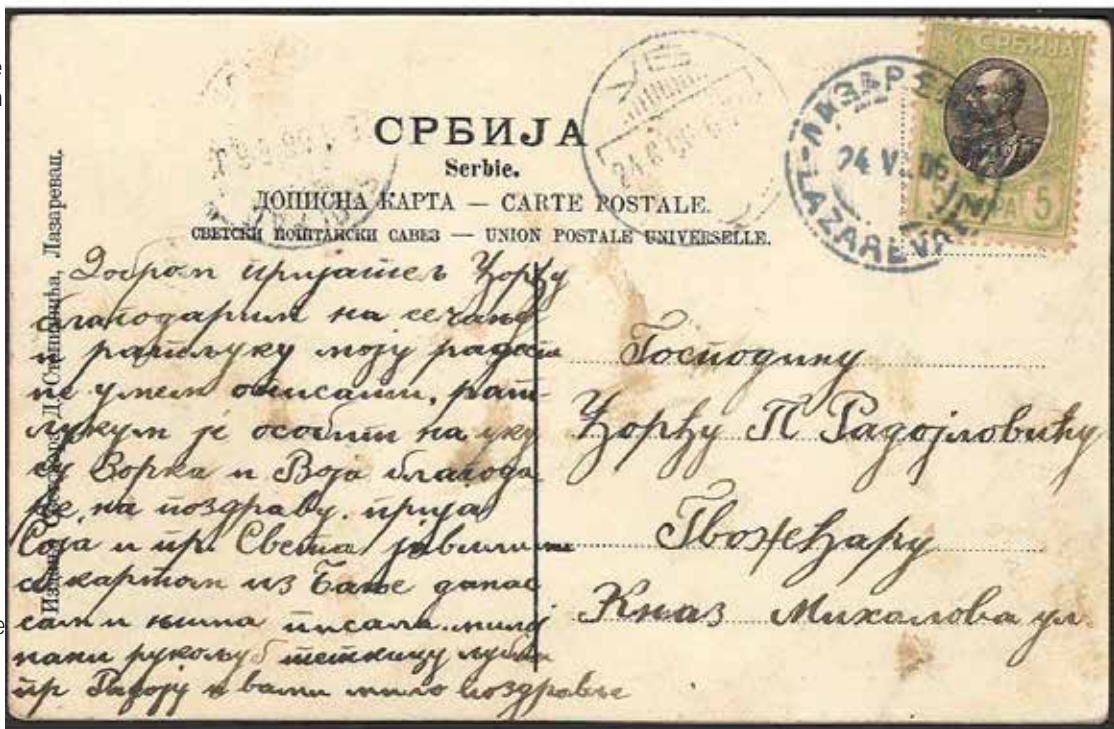 СРБИЈА
Serbie.
ДОПИСНА КАРТА — CARTE POSTALE.
СВЕТСКИ ПОШТАНСКИ САВЕЗ — UNION POSTALE UNIVERSELLE.
СРБИЈА
ПАРА 5
ЛАЗАРЕВАЦ
24 V 06
LAZAREVATZ
УБ
Лазаревац.
Добром пријатељ Ђорђу
благодарим на сећању
и ратлуку моју радост
не умем описати. рат-
лукум је особити на уку
су Зорка и Воја благода
ре на поздраву. прија
Соја и пр. Света јавили ми
се картом из Бање данас
сам и њима писала. мило
нани рукољуб теткицу љуби
пр Радоју и вами мило поздравље
Господину
Ђорђу П Радојловићу
Гвожђару
Кнез Михаилова ул.